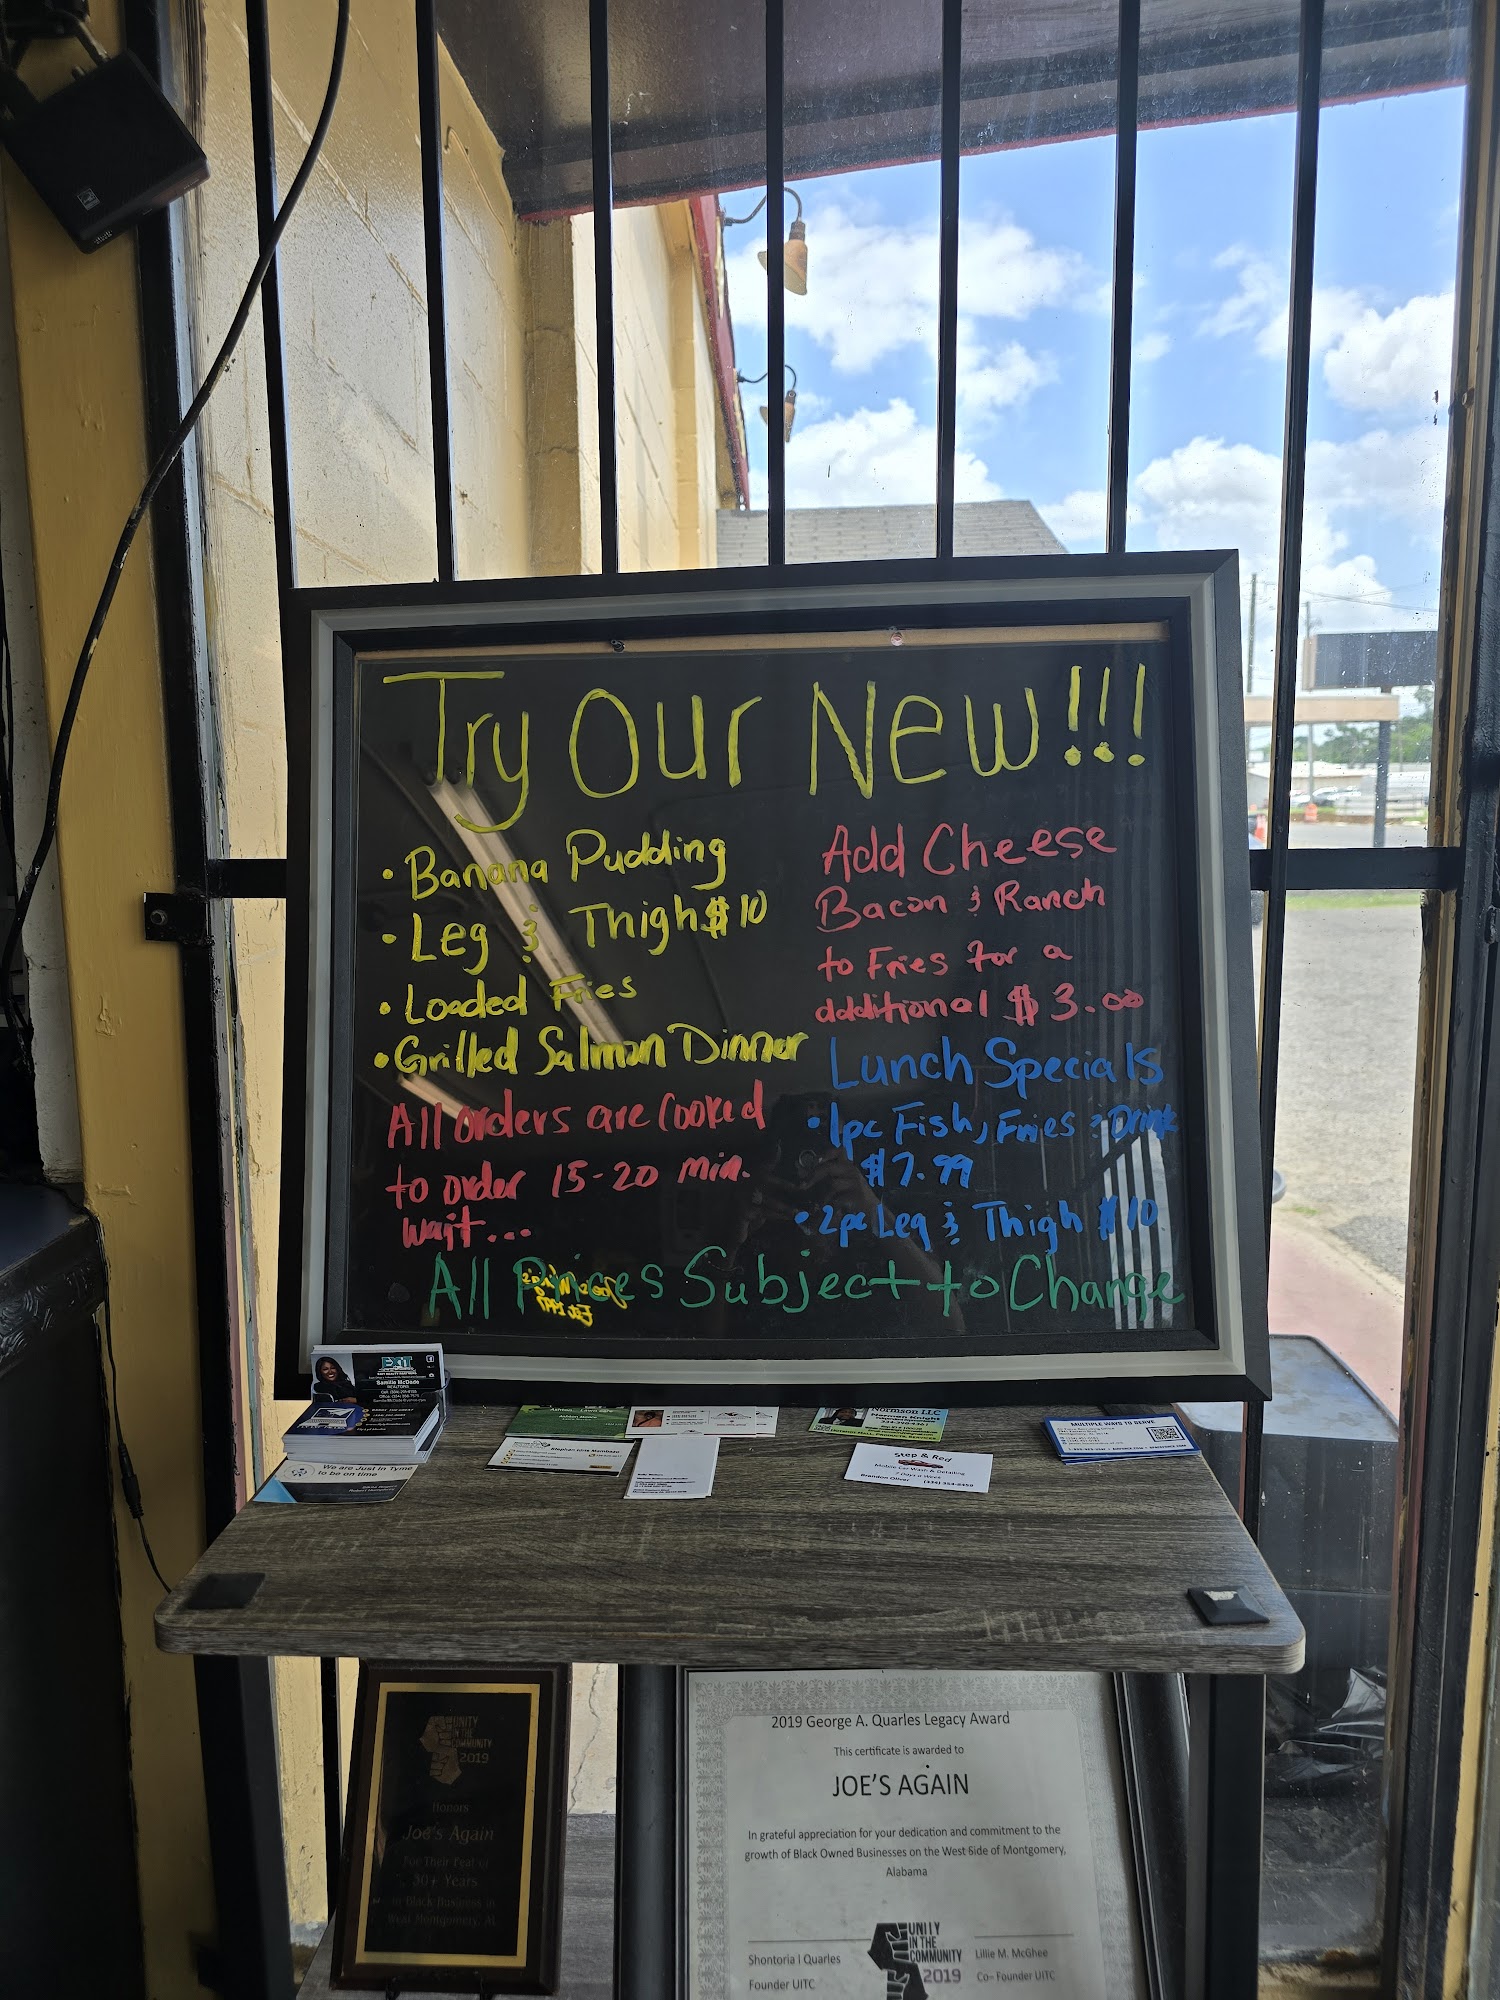 Try Our New!!!
• Banana Pudding
• Leg & Thigh $10
• Loaded Fries
• Grilled Salmon Dinner
All orders are cooked
to order 15-20 min.
wait...
Add Cheese
Bacon & Ranch
to Fries for a
additional $3.00
Lunch Specials
• 1pc Fish, Fries & Drink
$7.99
• 2pc Leg & Thigh $10
All Prices Subject to Change
EXIT
Samille McDade
REALTOR®
We are Just In Tyme
to be on time
Normson LLC
Norman Knight
Step & Red
Mobile Car Wash & Detailing
7 Days a Week
Brandon Oliver (334) 354-8459
MULTIPLE WAYS TO SERVE
UNITY
IN THE
COMMUNITY
2019
Honors
Joe's Again
For Their Feat of
30+ Years
in Black Business in
West Montgomery, AL
2019 George A. Quarles Legacy Award
This certificate is awarded to
JOE'S AGAIN
In grateful appreciation for your dedication and commitment to the
growth of Black Owned Businesses on the West Side of Montgomery,
Alabama
Shontoria l Quarles
Founder UITC
UNITY
IN THE
COMMUNITY
2019
Lillie M. McGhee
Co- Founder UITC